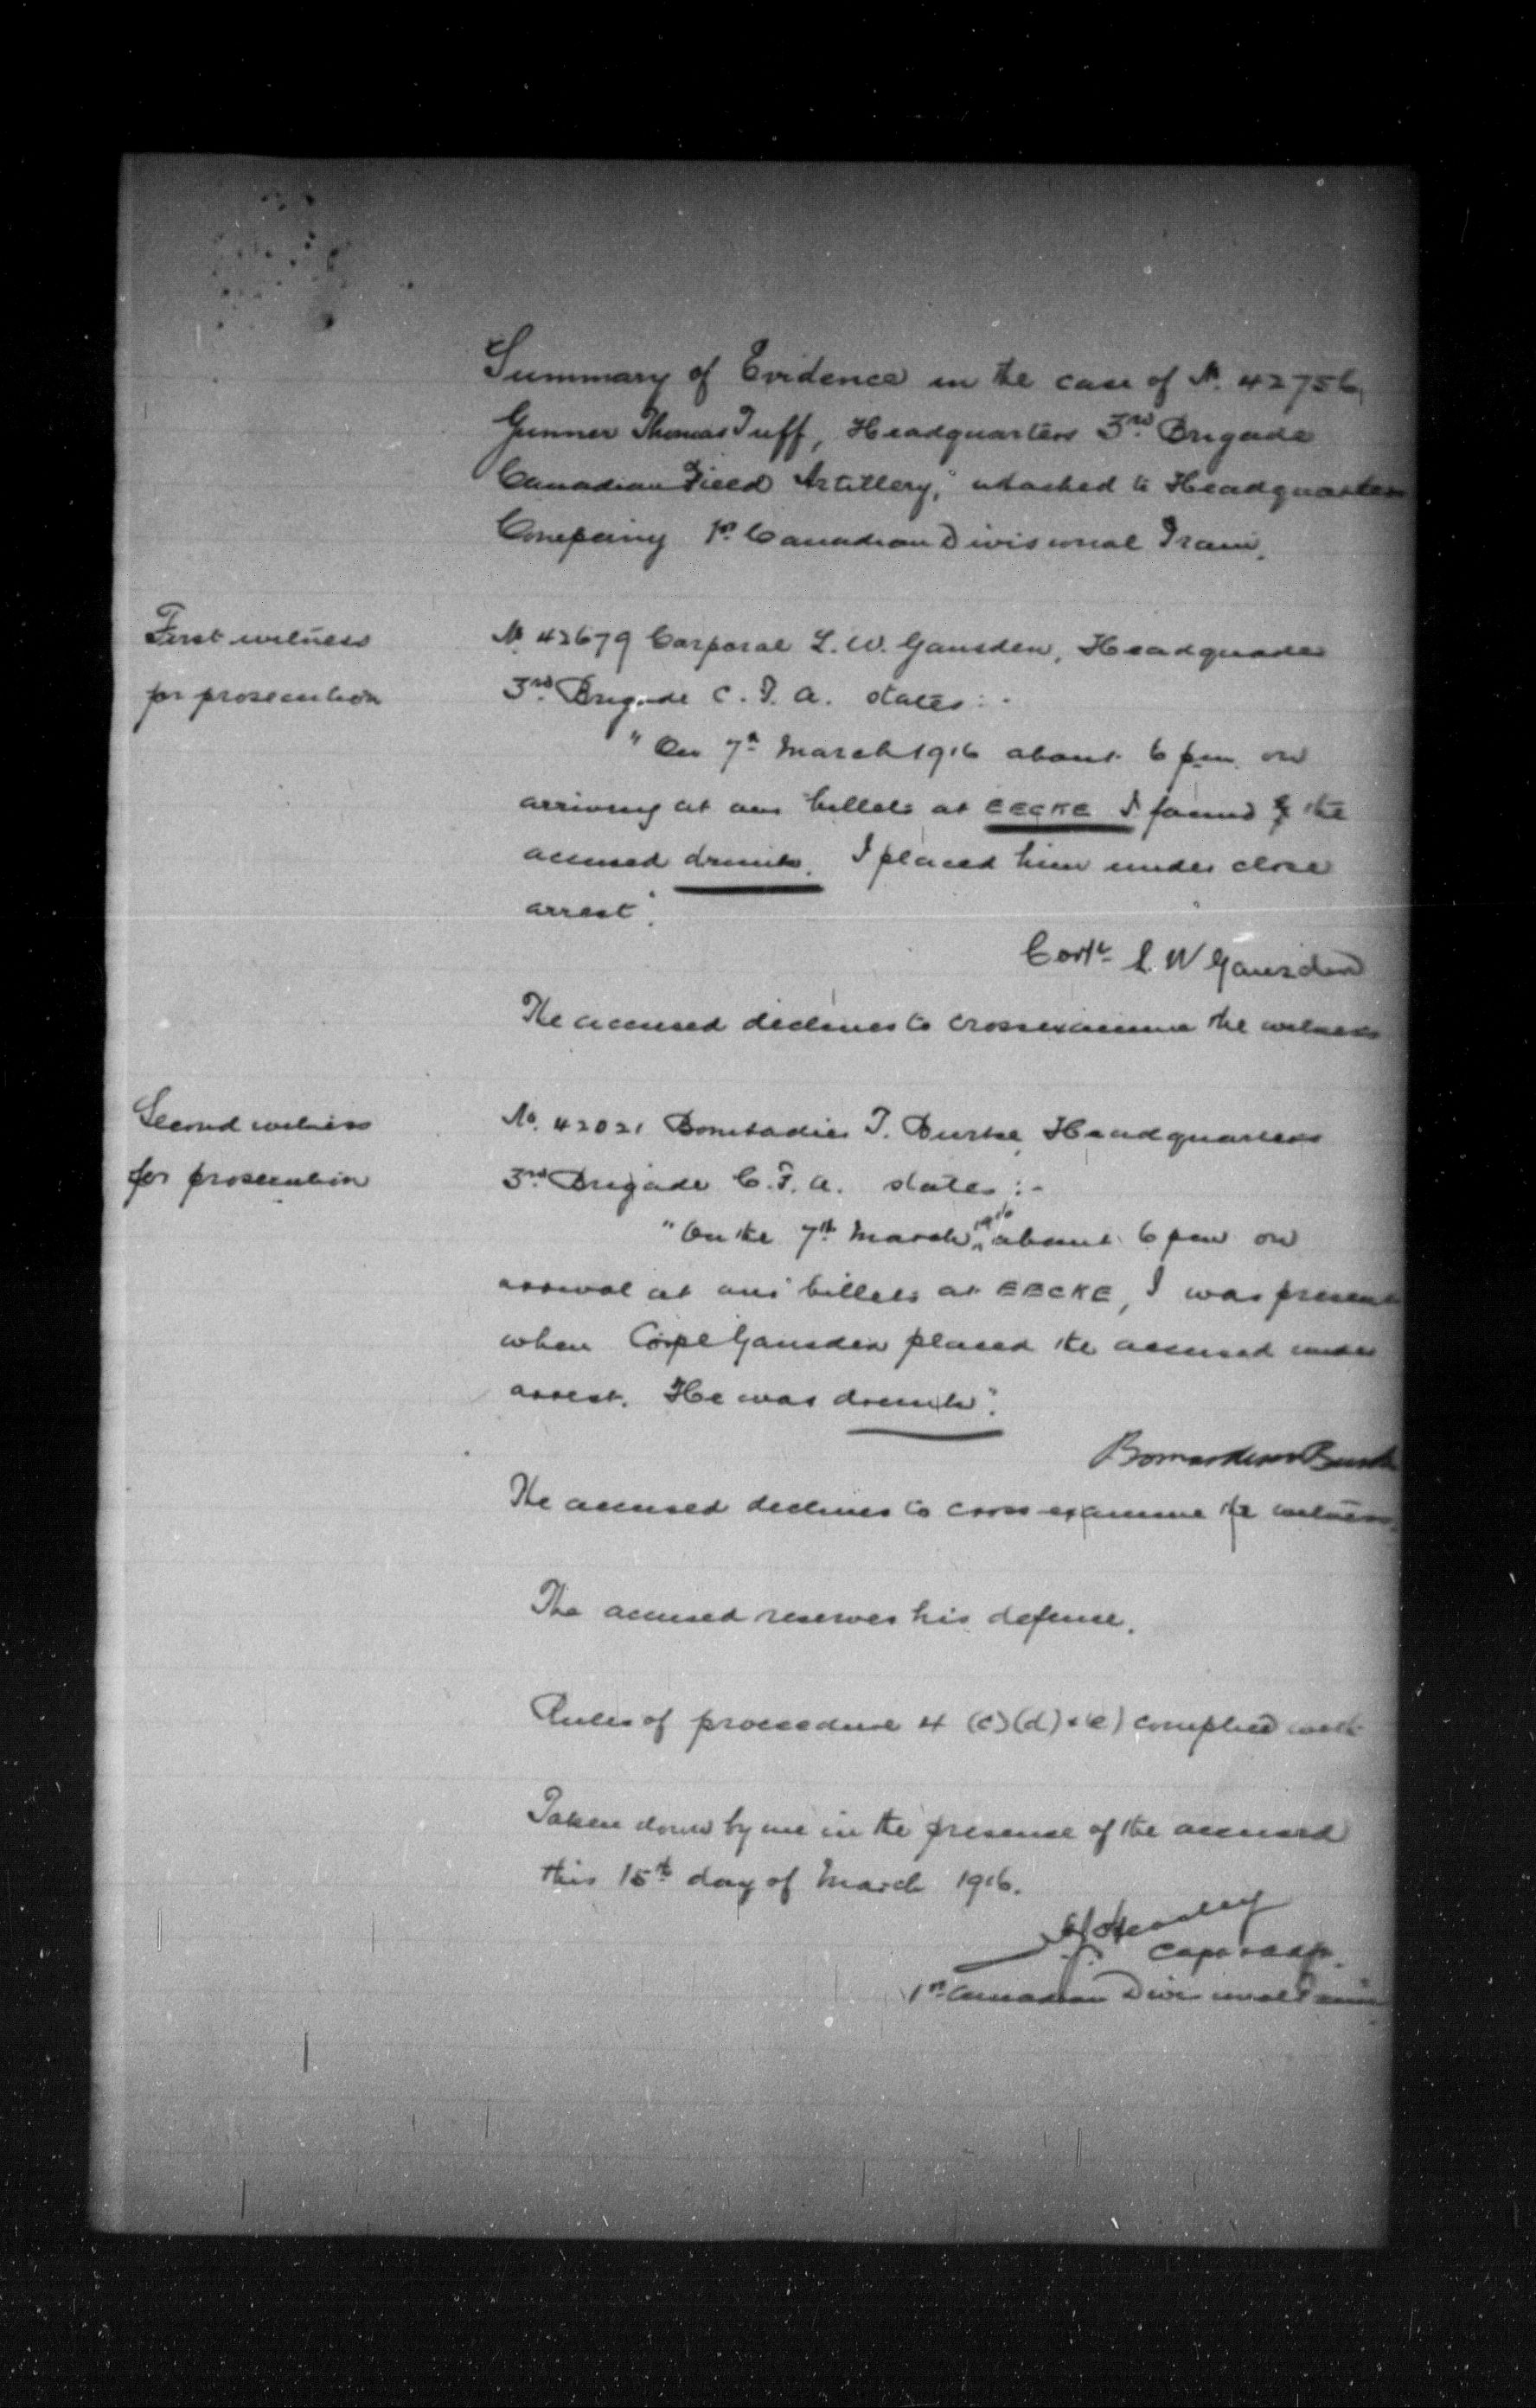 Summary of Evidence in the case of No. 42756,
Gunner Thomas Tuff, Headquarters 3rd Brigade
Canadian Field Artillery, attached to Headquarters
Company 1st Canadian Divisional Train.
First witness
for prosecution
No 42679 Corporal L. W. Gausden, Headquarters
3rd Brigade C. F. A. states :-
"On 7th March 1916 about 6 pm on
arriving at our billets at EECKE I found the
accused drunk. I placed him under close
arrest".
Corpl L. W Gausden
The accused declines to crossexamine the witness
Second witness
for prosecution
No. 42021 Bombadier T. Burke, Headquarters
3rd Brigade C. F. A. states :-
"On the 7th March, 1916 about 6 pm on
arrival at our billets at EECKE, I was present
when Corpl Gausden placed the accused under
arrest. He was drunk".
Bombardier Burke
The accused declines to cross examine the witness.
The accused reserves his defense.
Rules of proceedure 4 (c) (d) & (e) complied with
Taken down by me in the presence of the accused
this 15th day of March 1916.
Capt & Adjt.
1st Canadian Divisional Train